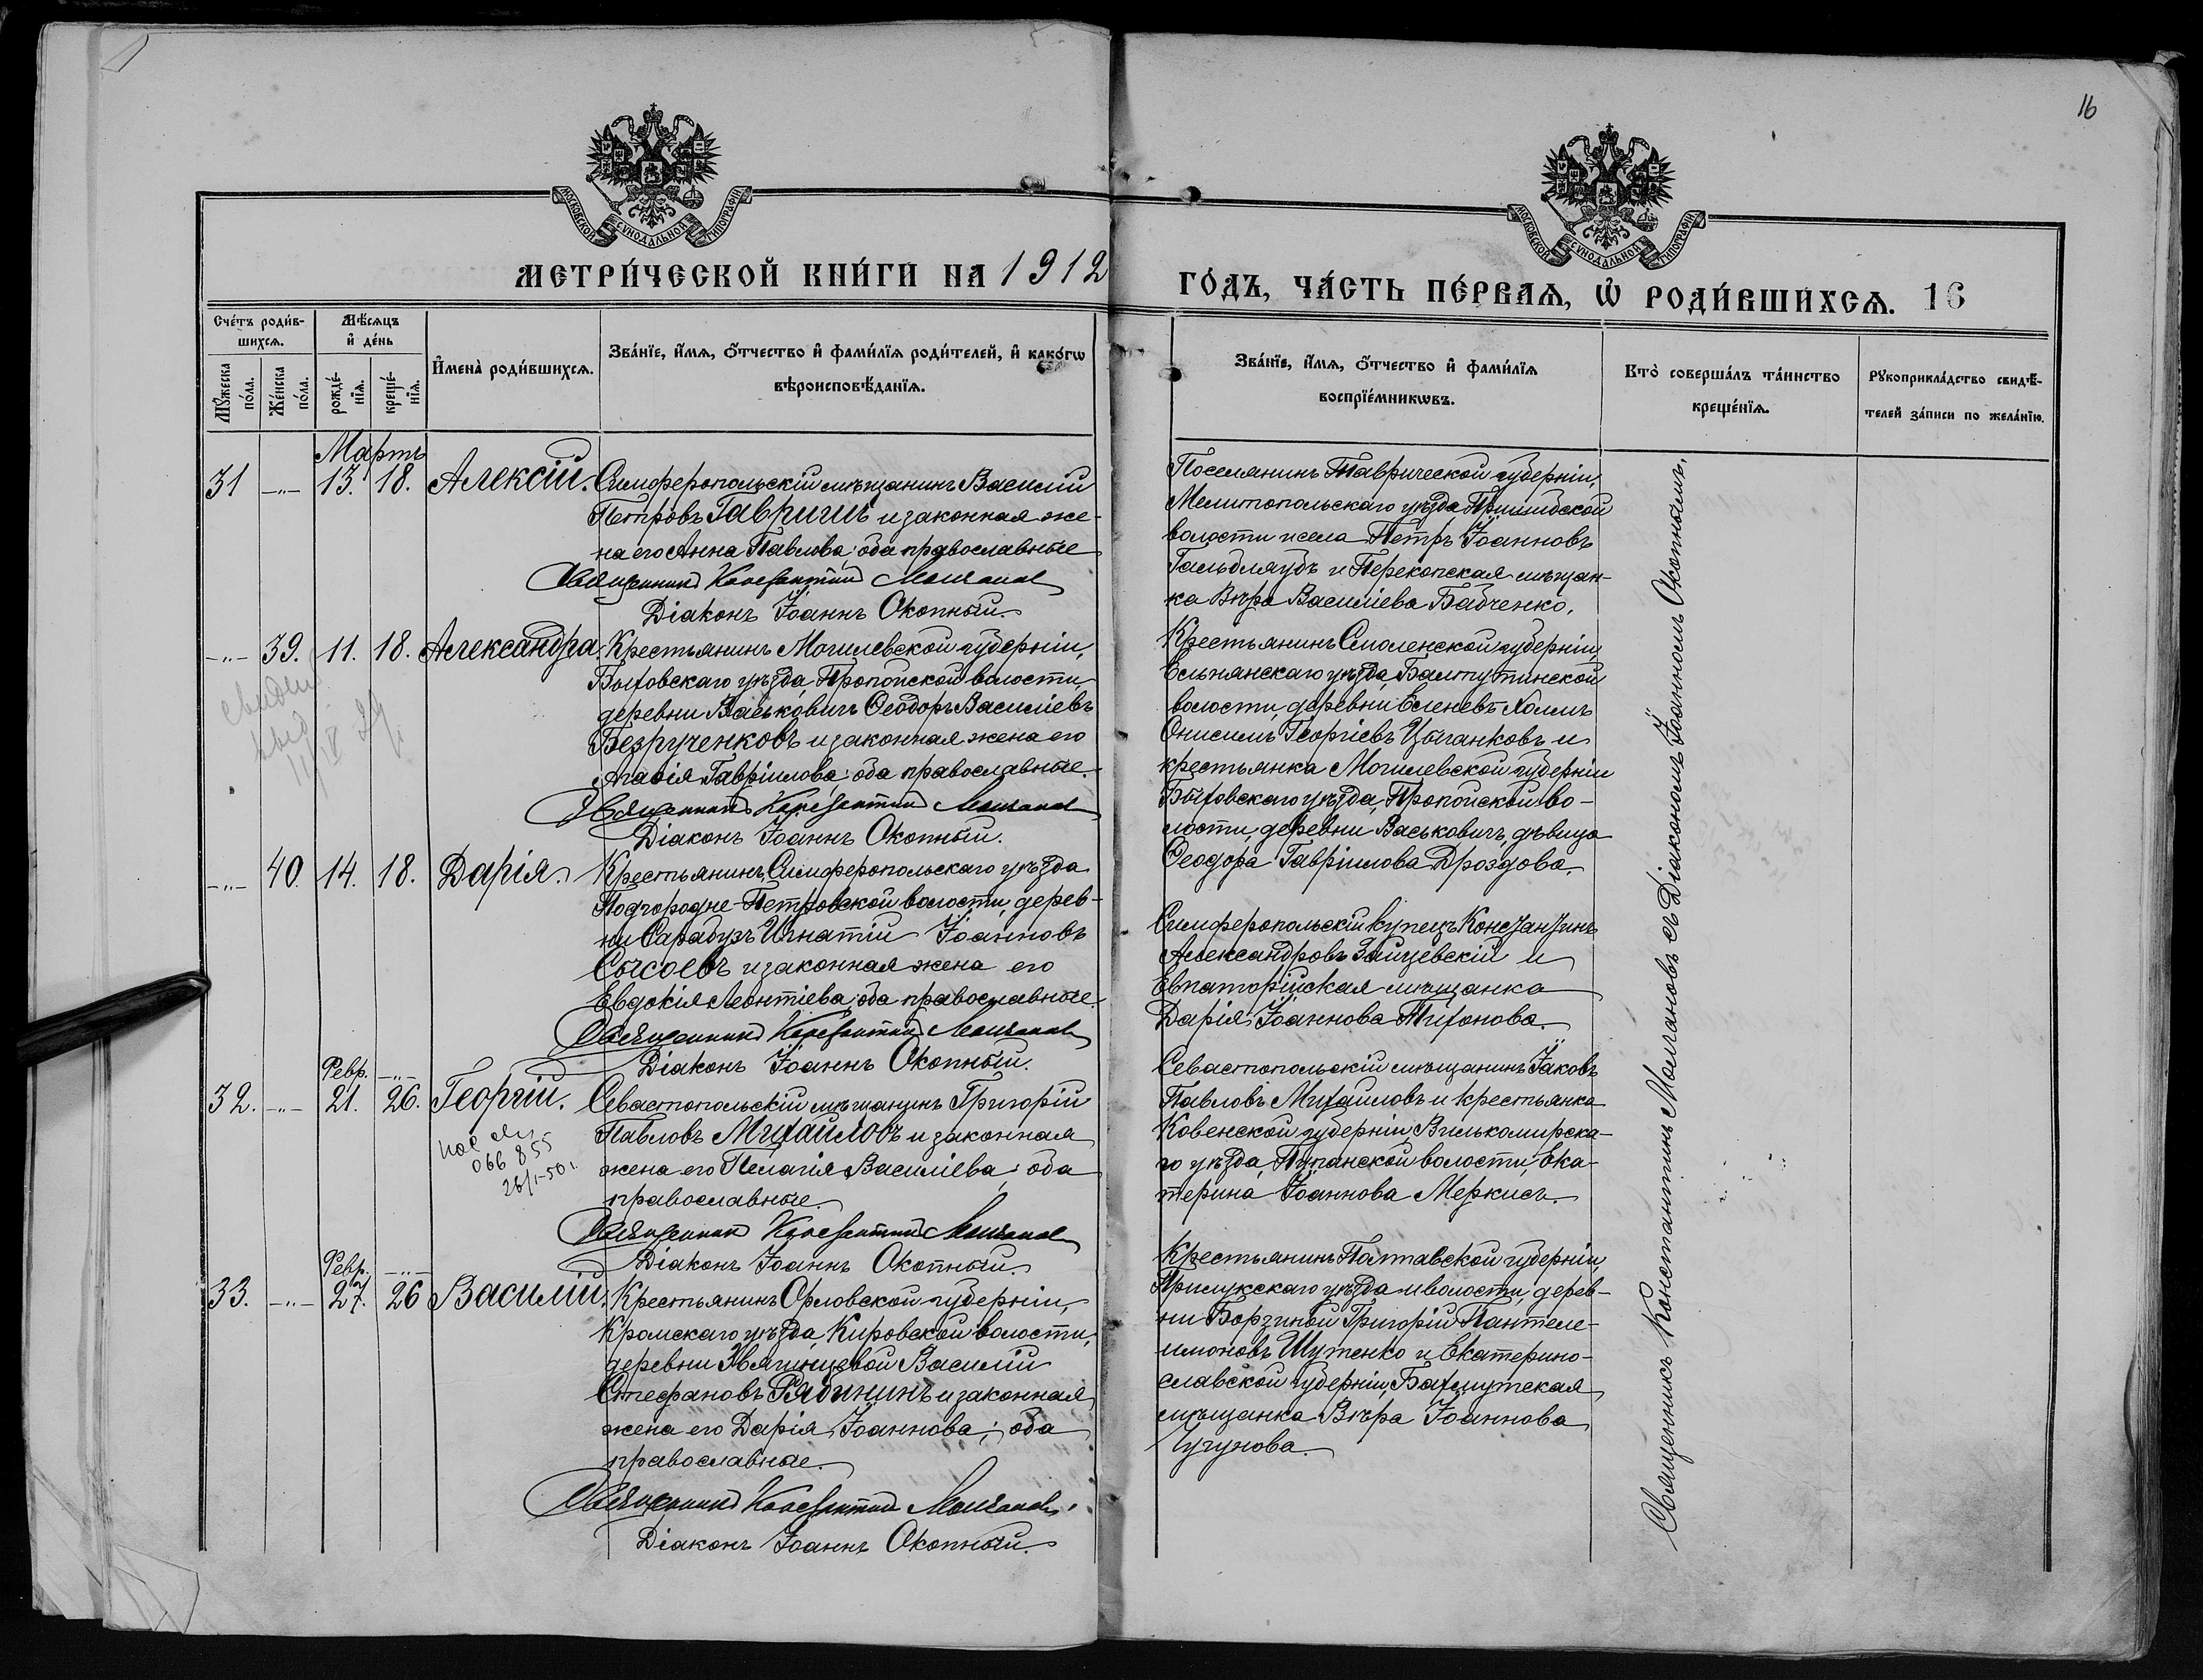 16
МОСКОВСКОЙ СѴНОДАЛЬНОЙ ТИПОГРАФІИ
МОСКОВСКОЙ СѴНОДАЛЬНОЙ ТИПОГРАФІИ
МЕТРИ́ЧЕСКОЙ КНИ́ГИ НА 1912
ГО́ДЪ, ЧА́СТЬ ПЕ́РВАѦ, Ѡ҆ РОДИ́ВШИХСѦ. 16
Сче́тъ роди́в-
шихсѧ.
Мꙋ́жеска по́ла.
Же́нска по́ла.
Мѣ́сѧцъ
и҆ де́нь
рожде́-
нїѧ.
креще́-
нїѧ.
И҆мена̀ роди́вшихсѧ.
Зва́нїе, и҆́мѧ, ѻ҆́тчество и҆ фами́лїѧ роди́телей, и҆ како́гѡ
вѣроисповѣ́данїѧ.
Зва́нїе, и҆́мѧ, ѻ҆́тчество и҆ фами́лїѧ
воспрїе́мникѡвъ.
Кто̀ соверша́лъ та́инство
креще́нїѧ.
Рꙋкоприкла́дство свидѣ́-
телей за́писи по жела́нїю.
Мартъ
31 -"- 13. 18. Алексій. Симферопольскій мѣщанинъ Василій
Петровъ Гавришъ и законная же-
на его Анна Павлова; оба православные
Священникъ Константинъ Молчановъ
Діаконъ Іоаннъ Окопный.
Поселянинъ Таврической губерніи,
Мелитопольскаго уѣзда Пришибской
волости и села Петръ Іоанновъ
Гальблаубъ и Перекопская мѣщан-
ка Вѣра Василіева Бабченко.
-"- 39. 11. 18. Александра. Крестьянинъ Могилевской губерніи,
Быховскаго уѣзда, Пропойской волости,
деревни Васьковичъ Ѳеодоръ Василіевъ
Безрученковъ и законная жена его
Агаѳія Гавріилова; оба православные.
Священникъ Константинъ Молчановъ
Діаконъ Іоаннъ Окопный.
Крестьянинъ Смоленской губерніи,
Ельнянскаго уѣзда, Балтутинской
волости, деревни Еленевъ Холмъ
Онисимъ Георгіевъ Цыганковъ и
крестьянка Могилевской губерніи
Быховскаго уѣзда, Пропойской во-
лости, деревни Васьковичъ, дѣвица
Ѳеодора Гавріилова Дроздова.
-"- 40. 14. 18. Дарія. Крестьянинъ Симферопольскаго уѣзда
Подгородне-Петровской волости, дерев-
ни Сарабузъ Игнатій Іоанновъ
Сысоевъ и законная жена его
Евдокія Леонтіева; оба православные.
Священникъ Константинъ Молчановъ
Діаконъ Іоаннъ Окопный.
Симферопольскій купецъ Константинъ
Александровъ Зайцевскій и
Евпаторійская мѣщанка
Дарія Іоаннова Тихонова.
Февр. -"-
32. -"- 21. 26. Георгій. Севастопольскій мѣщанинъ Григорій
Павловъ Михайловъ и законная
жена его Пелагія Василіева; оба
православные.
066 855
26/1-50 г.
Священникъ Константинъ Молчановъ
Діаконъ Іоаннъ Окопный.
Севастопольскій мѣщанинъ Іаковъ
Павловъ Михайловъ и крестьянка
Ковенской губерніи, Вилькомирска-
го уѣзда, волости, Ека-
терина Іоаннова Меркисъ.
Февр. -"-
33. -"- 27. 26 Василій. Крестьянинъ Орловской губерніи,
Кромскаго уѣзда, Кировской волости,
деревни Звягинцевой Василій
Стефановъ Рябининъ и законная
жена его Дарія Іоаннова; оба
православные.
Священникъ Константинъ Молчановъ
Діаконъ Іоаннъ Окопный.
Крестьянинъ Полтавской губерніи,
Прилукскаго уѣзда и волости, дерев-
ни Борзиной Григорій Пантеле-
имоновъ Шутенко и Екатерино-
славской губерніи, Бахмутская
мѣщанка Вѣра Іоаннова
Чугунова.
Священникъ Константинъ Молчановъ съ Діакономъ Іоанномъ Окопнымъ.